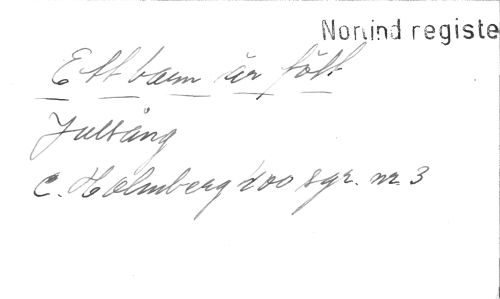 Nonind registe
Ett barn är fött
Julsång
C. Holmberg 100 sgr. nr. 3